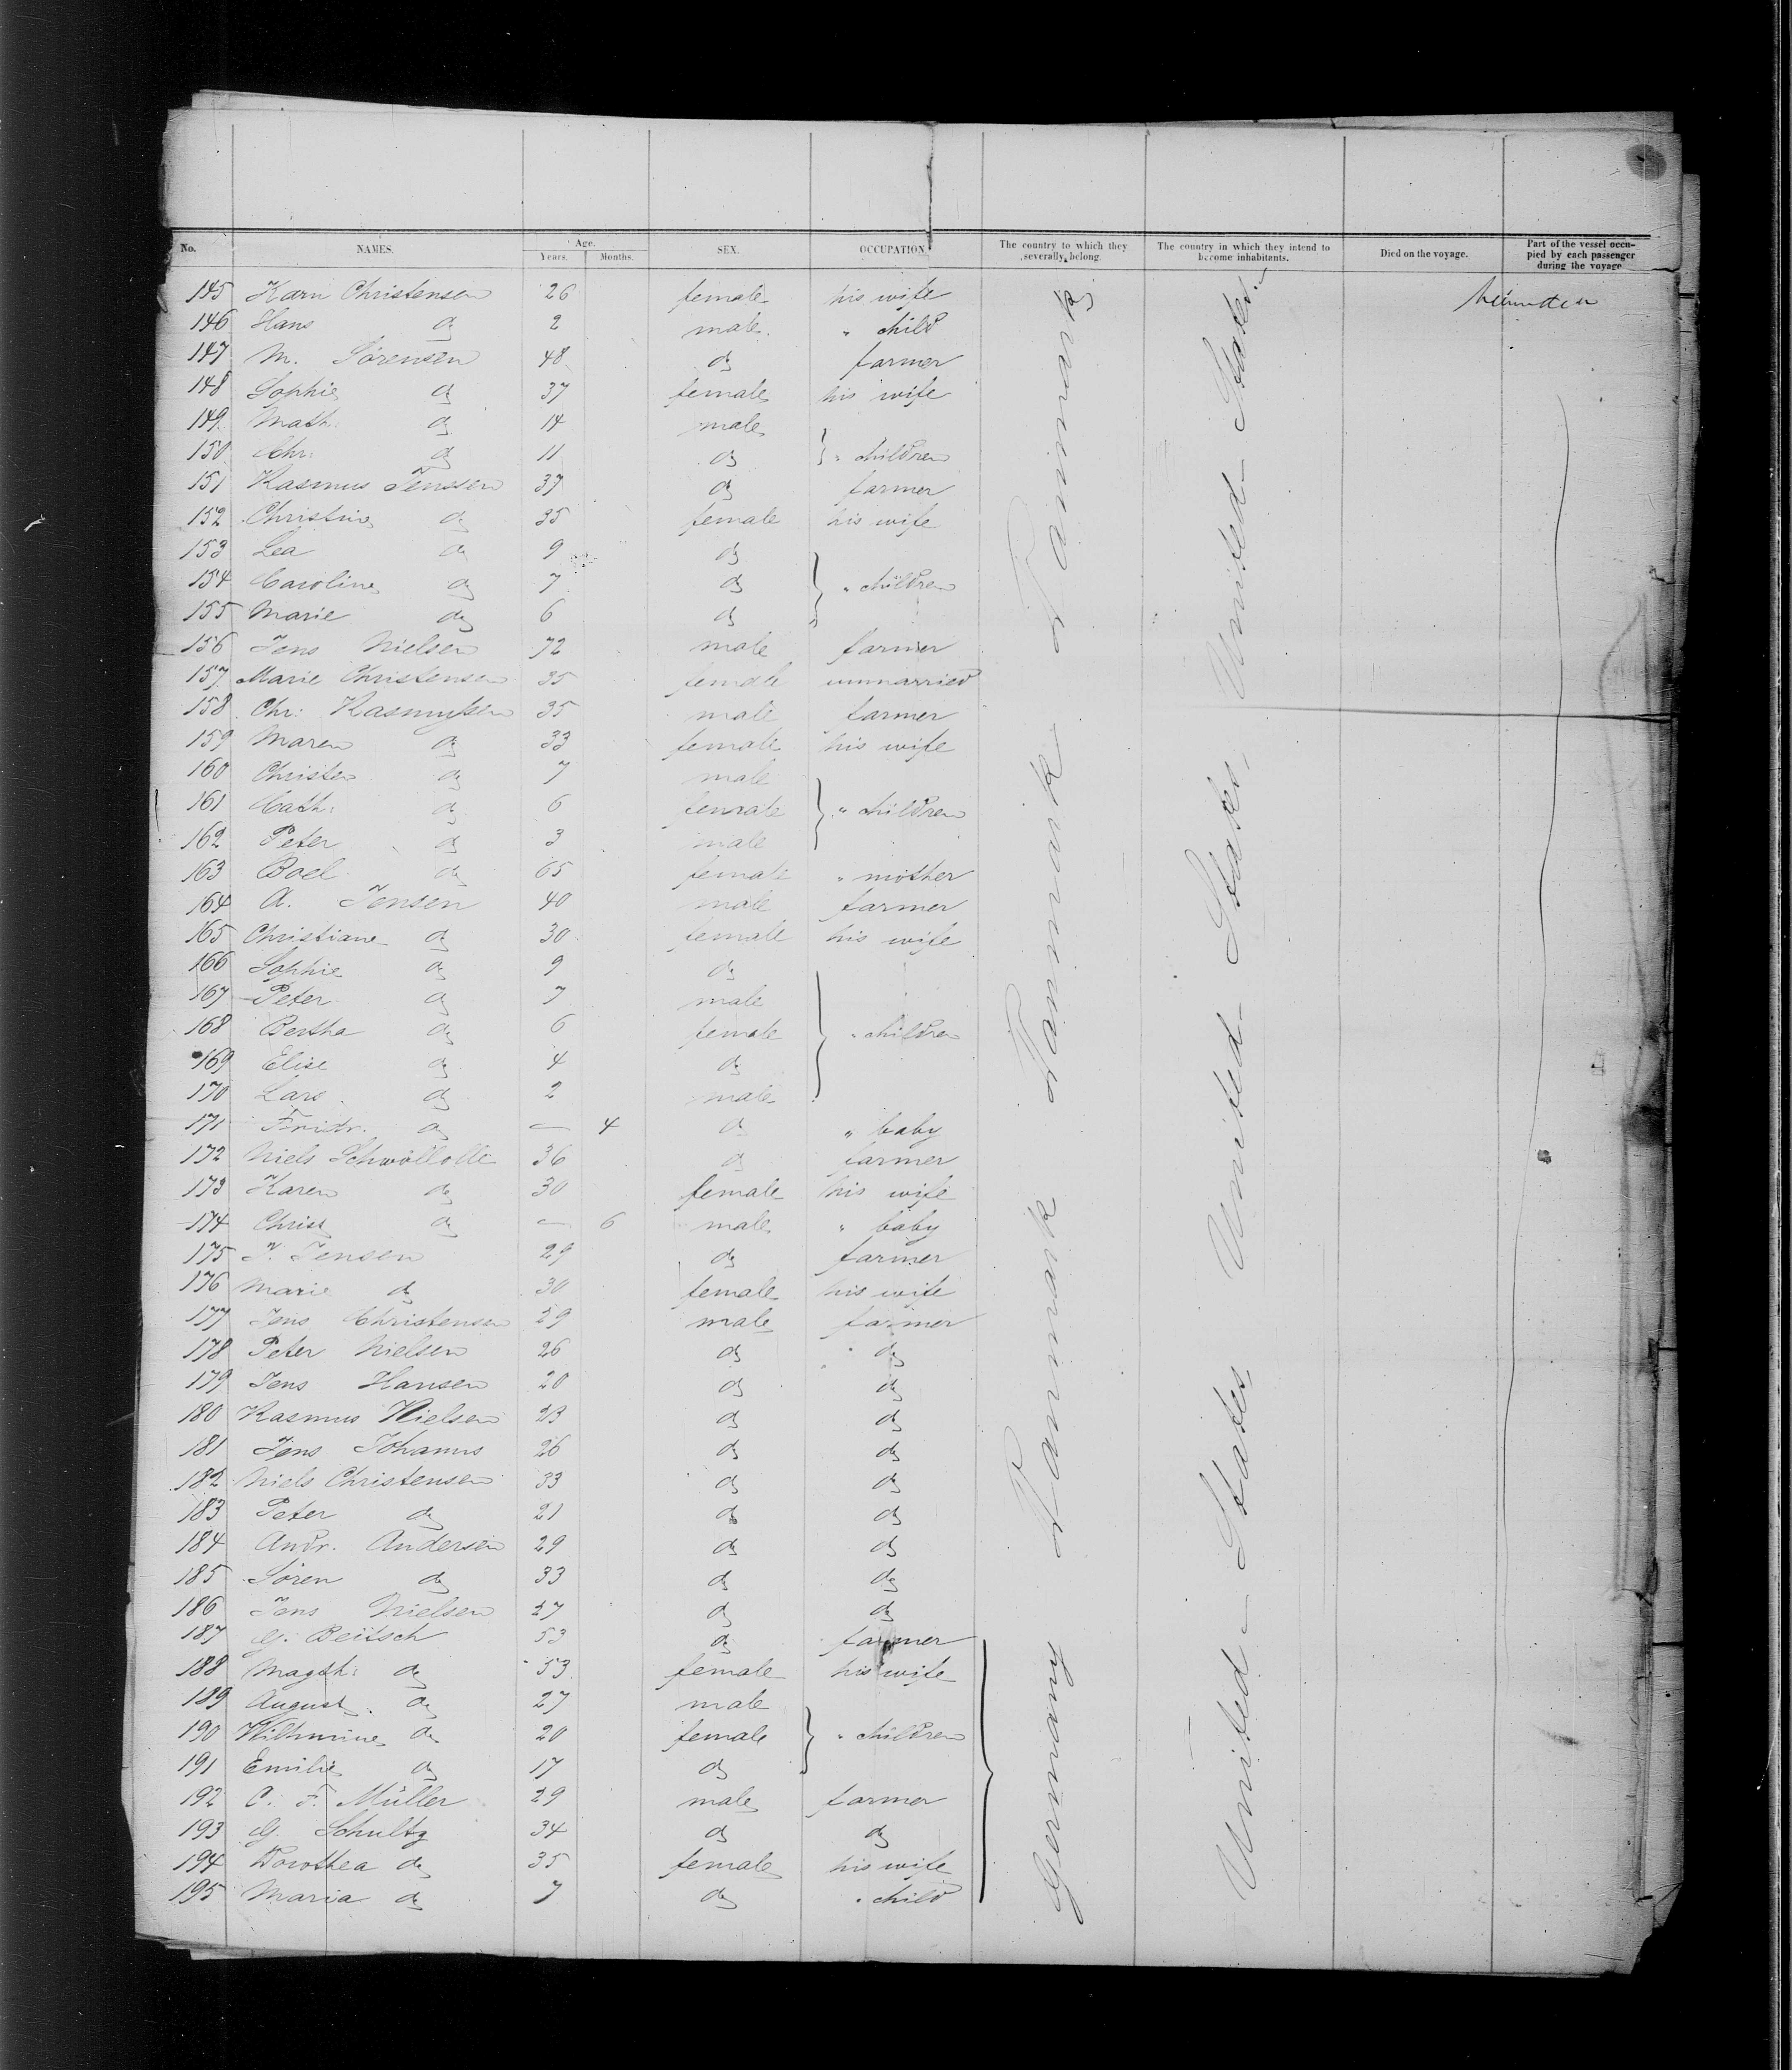 No. NAMES. Age. Years. Months. SEX. OCCUPATION. The country to which they severally belong. The country in which they intend to become inhabitants. Died on the voyage. Part of the vessel occupied by each passenger during the voyage
145 Karn Christensen 26 female his wife
146 Hans do 2 male " child
147 M. Sörensen 48 do farmer
148 Sophie do 37 female his wife
149 Math: do 14 male
150 Chr: do 11 do " children
151 Rasmus Jenssen 37 do farmer
152 Christine do 35 female his wife
153 Lea do 9 do
154 Caroline do 7 do " children
155 Marie do 6 do
156 Jens Nielsen 72 male farmer
157 Marie Christensen 35 female unmarried
158 Chr: Rasmussen 35 male farmer
159 Maren do 33 female his wife
160 Christen do 7 male
161 Cath: do 6 female " children
162 Peter do 3 male
163 Boel do 65 female " mother
164 A. Jensen 40 male farmer
165 Christiane do 30 female his wife
166 Sophie do 9 do
167 Peter do 7 male
168 Bertha do 6 female " children
169 Elise do 4 do
170 Lars do 2 male
171 Fridr. do — 4 do " baby
172 Niels 36 do farmer
173 Karen do 30 female his wife
174 Christ do — 6 male " baby
175 Jensen 29 do farmer
176 Marie do 30 female his wife
177 Jens Christensen 29 male farmer
178 Peter Nielsen 26 do do
179 Jens Hansen 20 do do
180 Rasmus Nielsen 23 do do
181 Jens Johanns 26 do do
182 Niels Christensen 33 do do
183 Peter do 21 do do
184 Andr. Andersen 29 do do
185 Sören do 33 do do
186 Jens Nielsen 27 do do
187 G. Beitsch 53 do farmer
188 Magth: do 53 female his wife
189 August do 27 male
190 Wilhmine do 20 female " children
191 Emilie do 17 do
192 C. F. Müller 29 male farmer
193 G. Schultz 34 do do
194 Dorothea do 35 female his wife
195 Maria do 7 do " child
Germany Danmark Danmark Danmark
United States United States United States